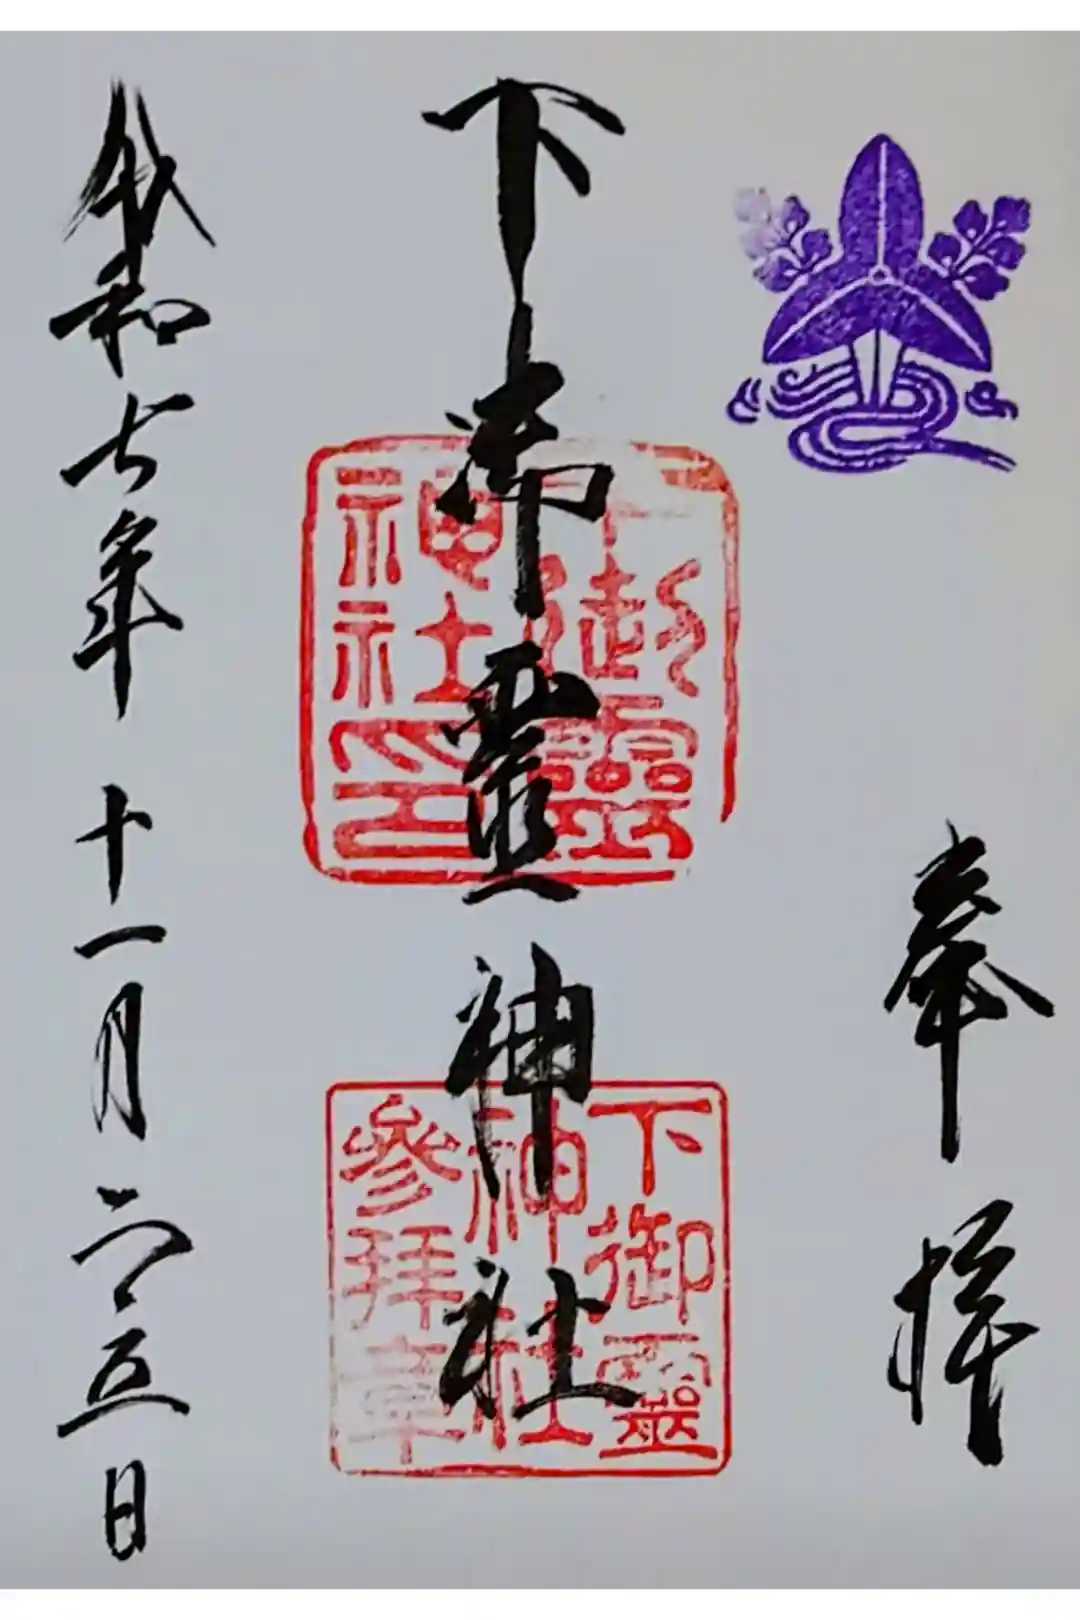 奉拝
下御靈
神社印
下御霊神社
下御靈
神社
參拜章
令和七年十一月二十五日